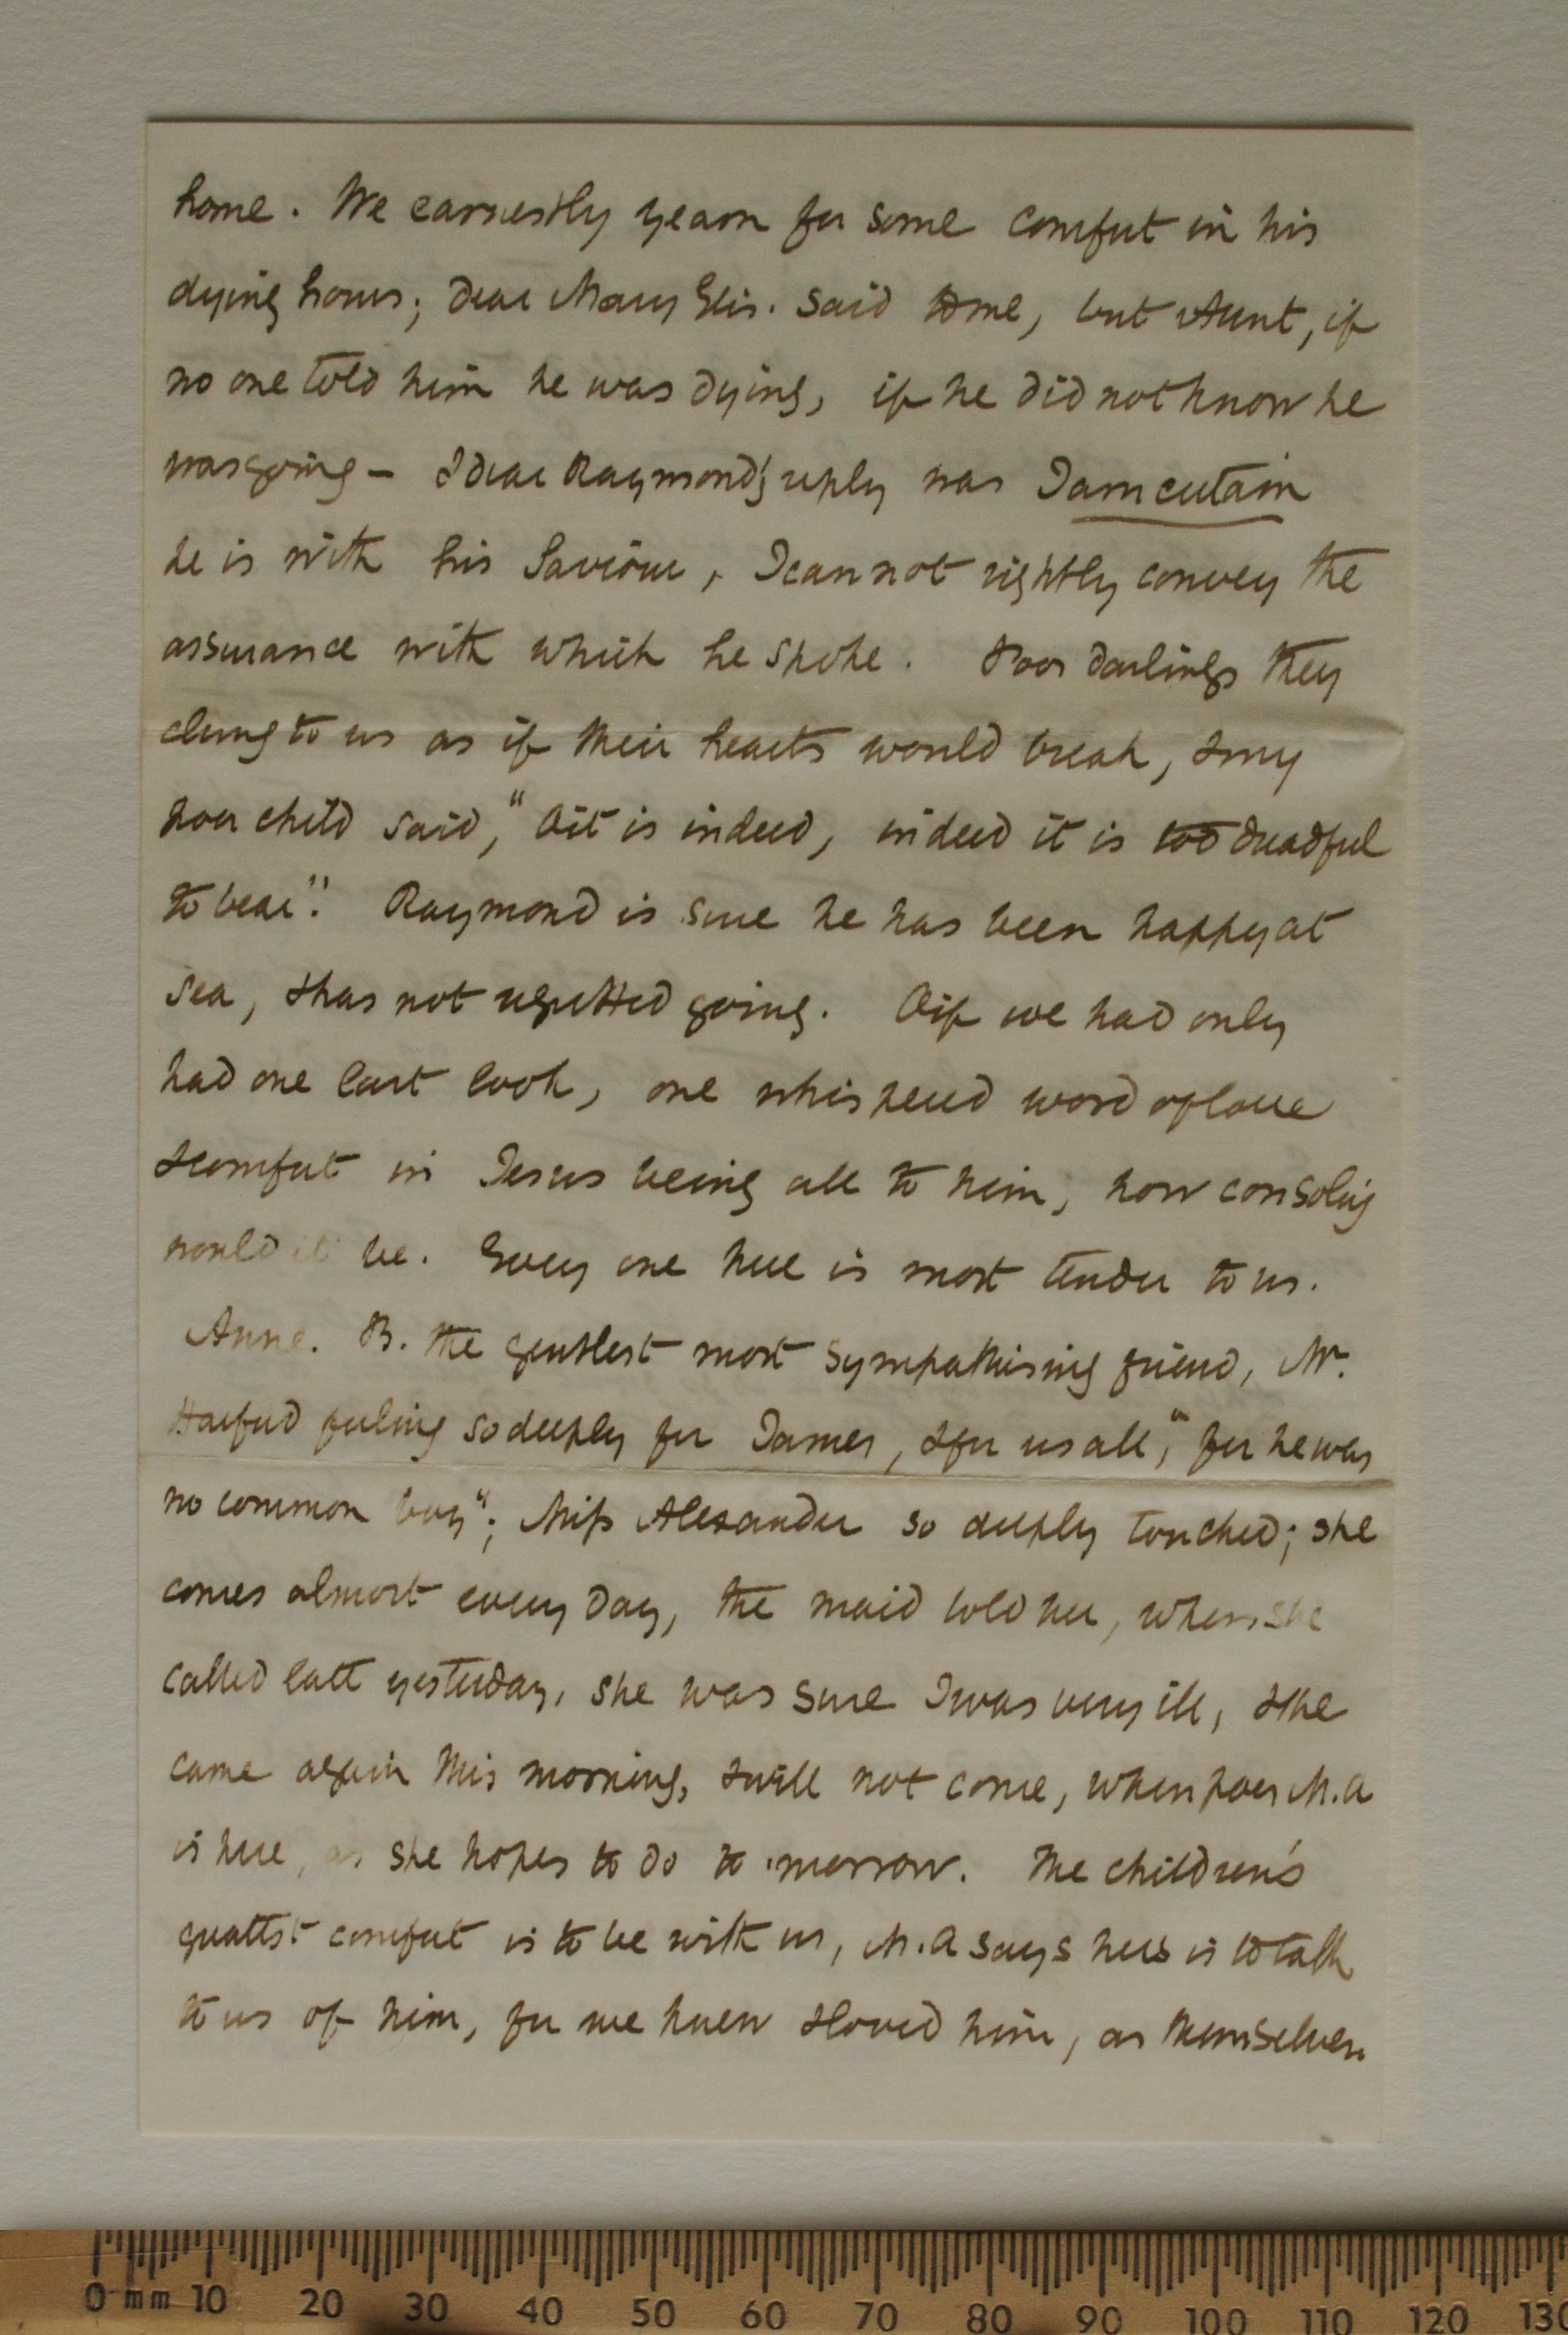 home. We earnestly yearn for some comfort in his
dying hours; dear Mary Elis. said to me, but Aunt, if
no one told him he was dying, if he did not know he
was going – & dear Raymond's reply was I am certain
he is with his Saviour, I can not rightly convey the
assurance with which he spoke. Poor darlings they
clung to us as if their hearts would break, & my
poor child said, "O it is indeed, indeed it is too dreadful
to bear". Raymond is sure he has been happy at
sea, & has not regretted going. O if we had only
had one last look, one whispered word of love
& comfort in Jesus being all to him, how consoling
would it be. Every one here is most tender to us.
Anne. B. the gentlest most sympathising friend, Mr.
Harford feeling so deeply for James, & for us all, "for he was
no common boy"; Miss Alexander so deeply touched; she
comes almost every day, the maid told her, when she
called late yesterday, she was sure I was very ill, & she
came again this morning, & will not come, when poor M.A
is here, as she hopes to do to-morrow. The children's
greatest comfort is to be with us, M.A says hers is to talk
to us of him, for we knew & loved him, as themselves.
0 mm 10 20 30 40 50 60 70 80 90 100 110 120 130